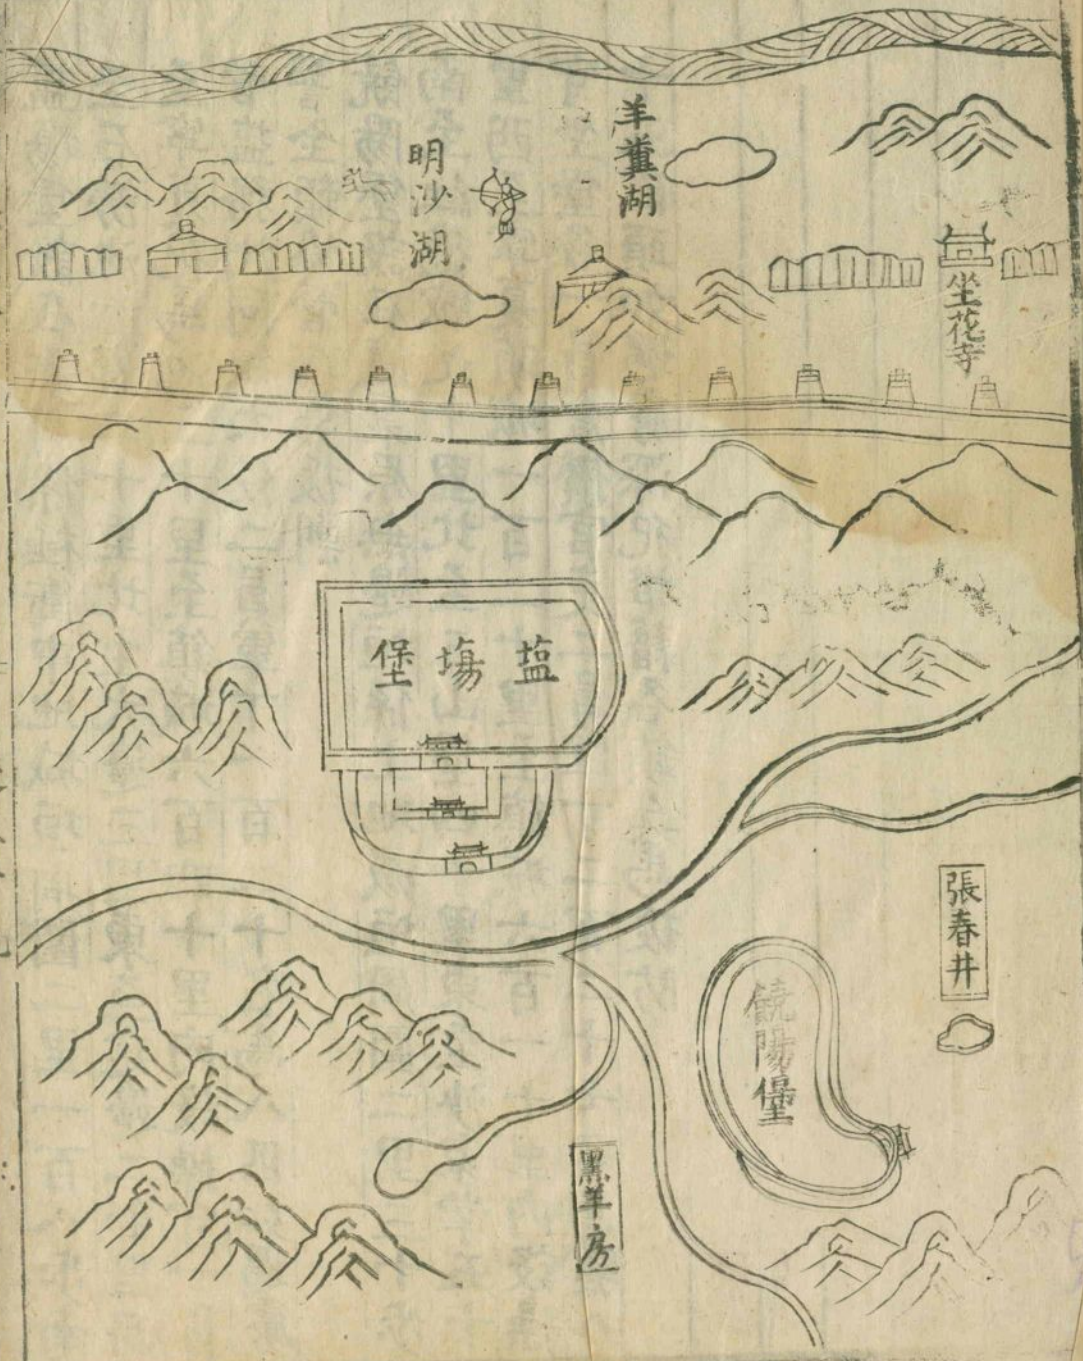 羊糞湖
明沙湖
坐花寺
塩塲堡
張春井
饒陽堡
黑羊房